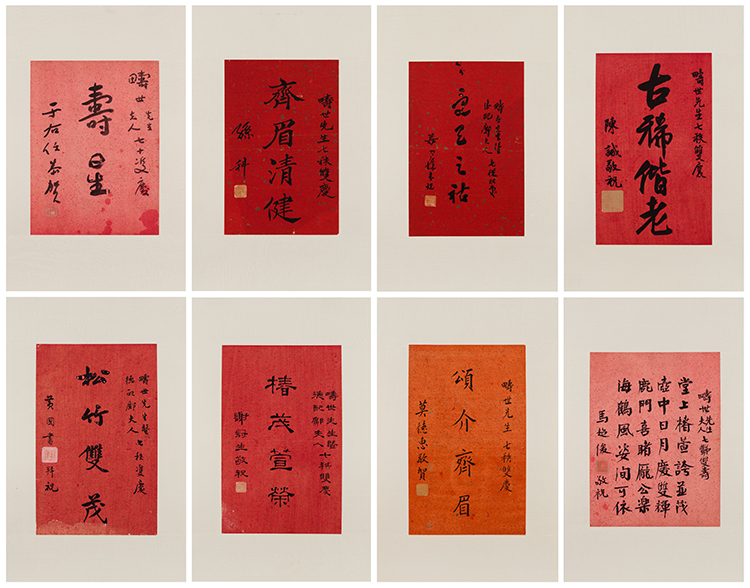 疇世先生
夫人七十雙慶
壽星
于右任恭賀
疇世先生七秩雙慶
齊眉清健
孫科
疇世先生暨
夫人七秩雙慶
天之祜
疇世先生七秩雙慶
古稀偕老
陳誠敬祝
疇世先生暨七秩雙慶
德配夫人
松竹雙茂
黃國書拜祝
疇世先生暨
德配夫人七秩雙慶
椿茂萱榮
謝冠生敬祝
疇世先生七秩雙慶
頌介齊眉
莫德惠敬賀
疇世先生
夫人七秩雙壽
堂上椿萱誇並茂
壺中日月慶雙輝
鹿門喜睹龐公樂
海鶴風姿洵可依
馬超俊敬祝